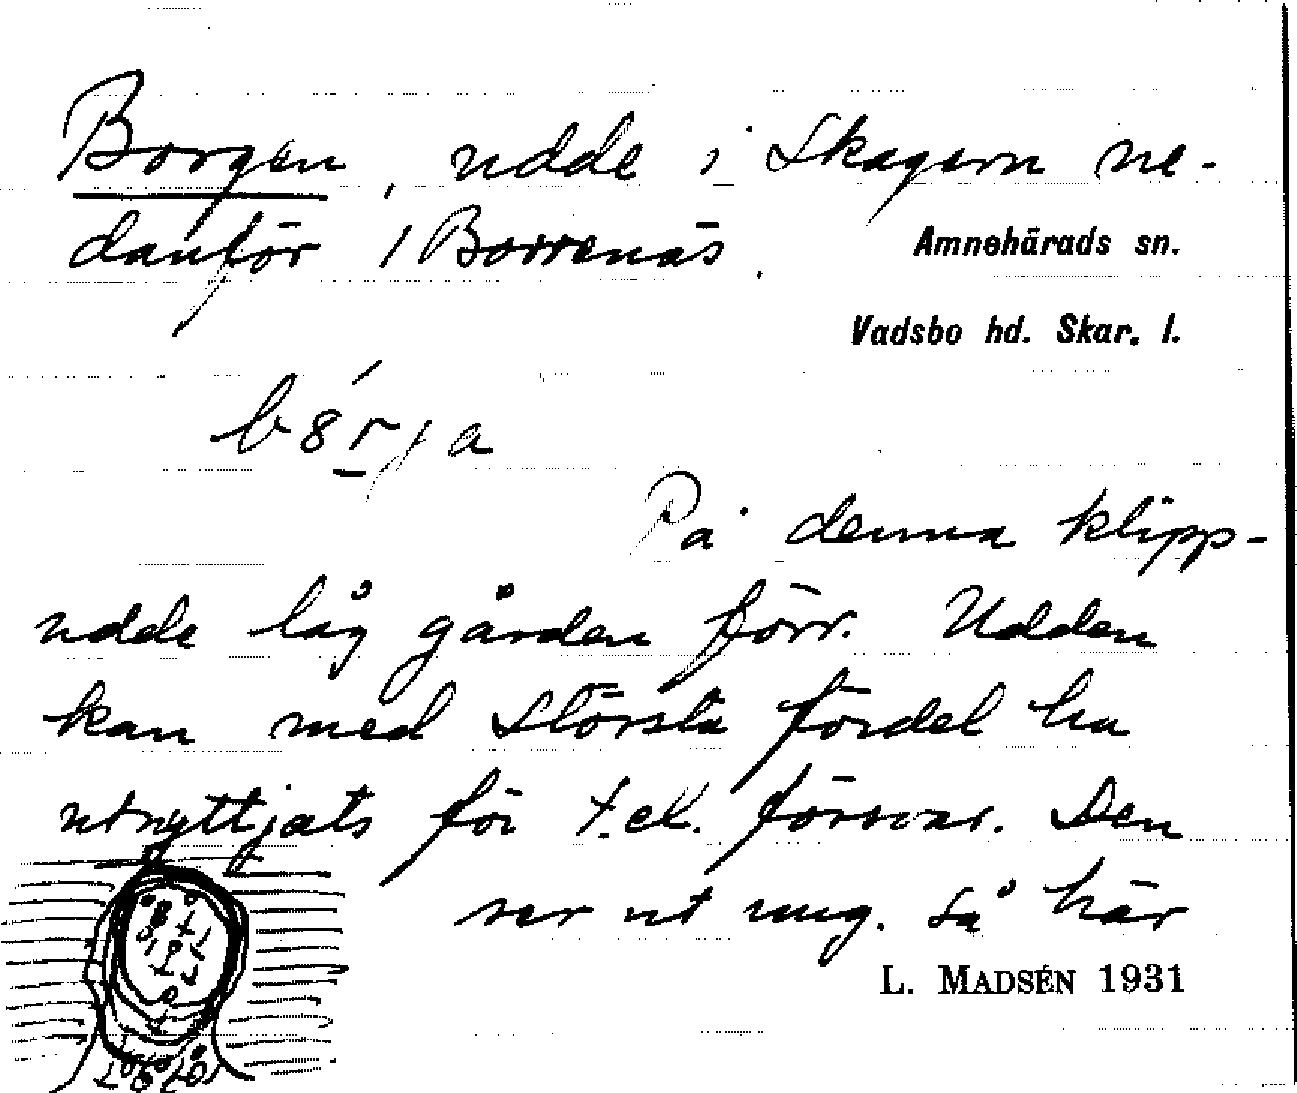 Borgen, udde i Skagern ne-
danför / Borrenäs.
Amnehärads sn.
Vadsbo hd. Skar. l.
På denna klipp-
udde låg gården förr. Udden
kan med största fördel ha
utnyttjats för t.ex. försvar. Den
ser ut ung. så här
L. MADSÉN 1931